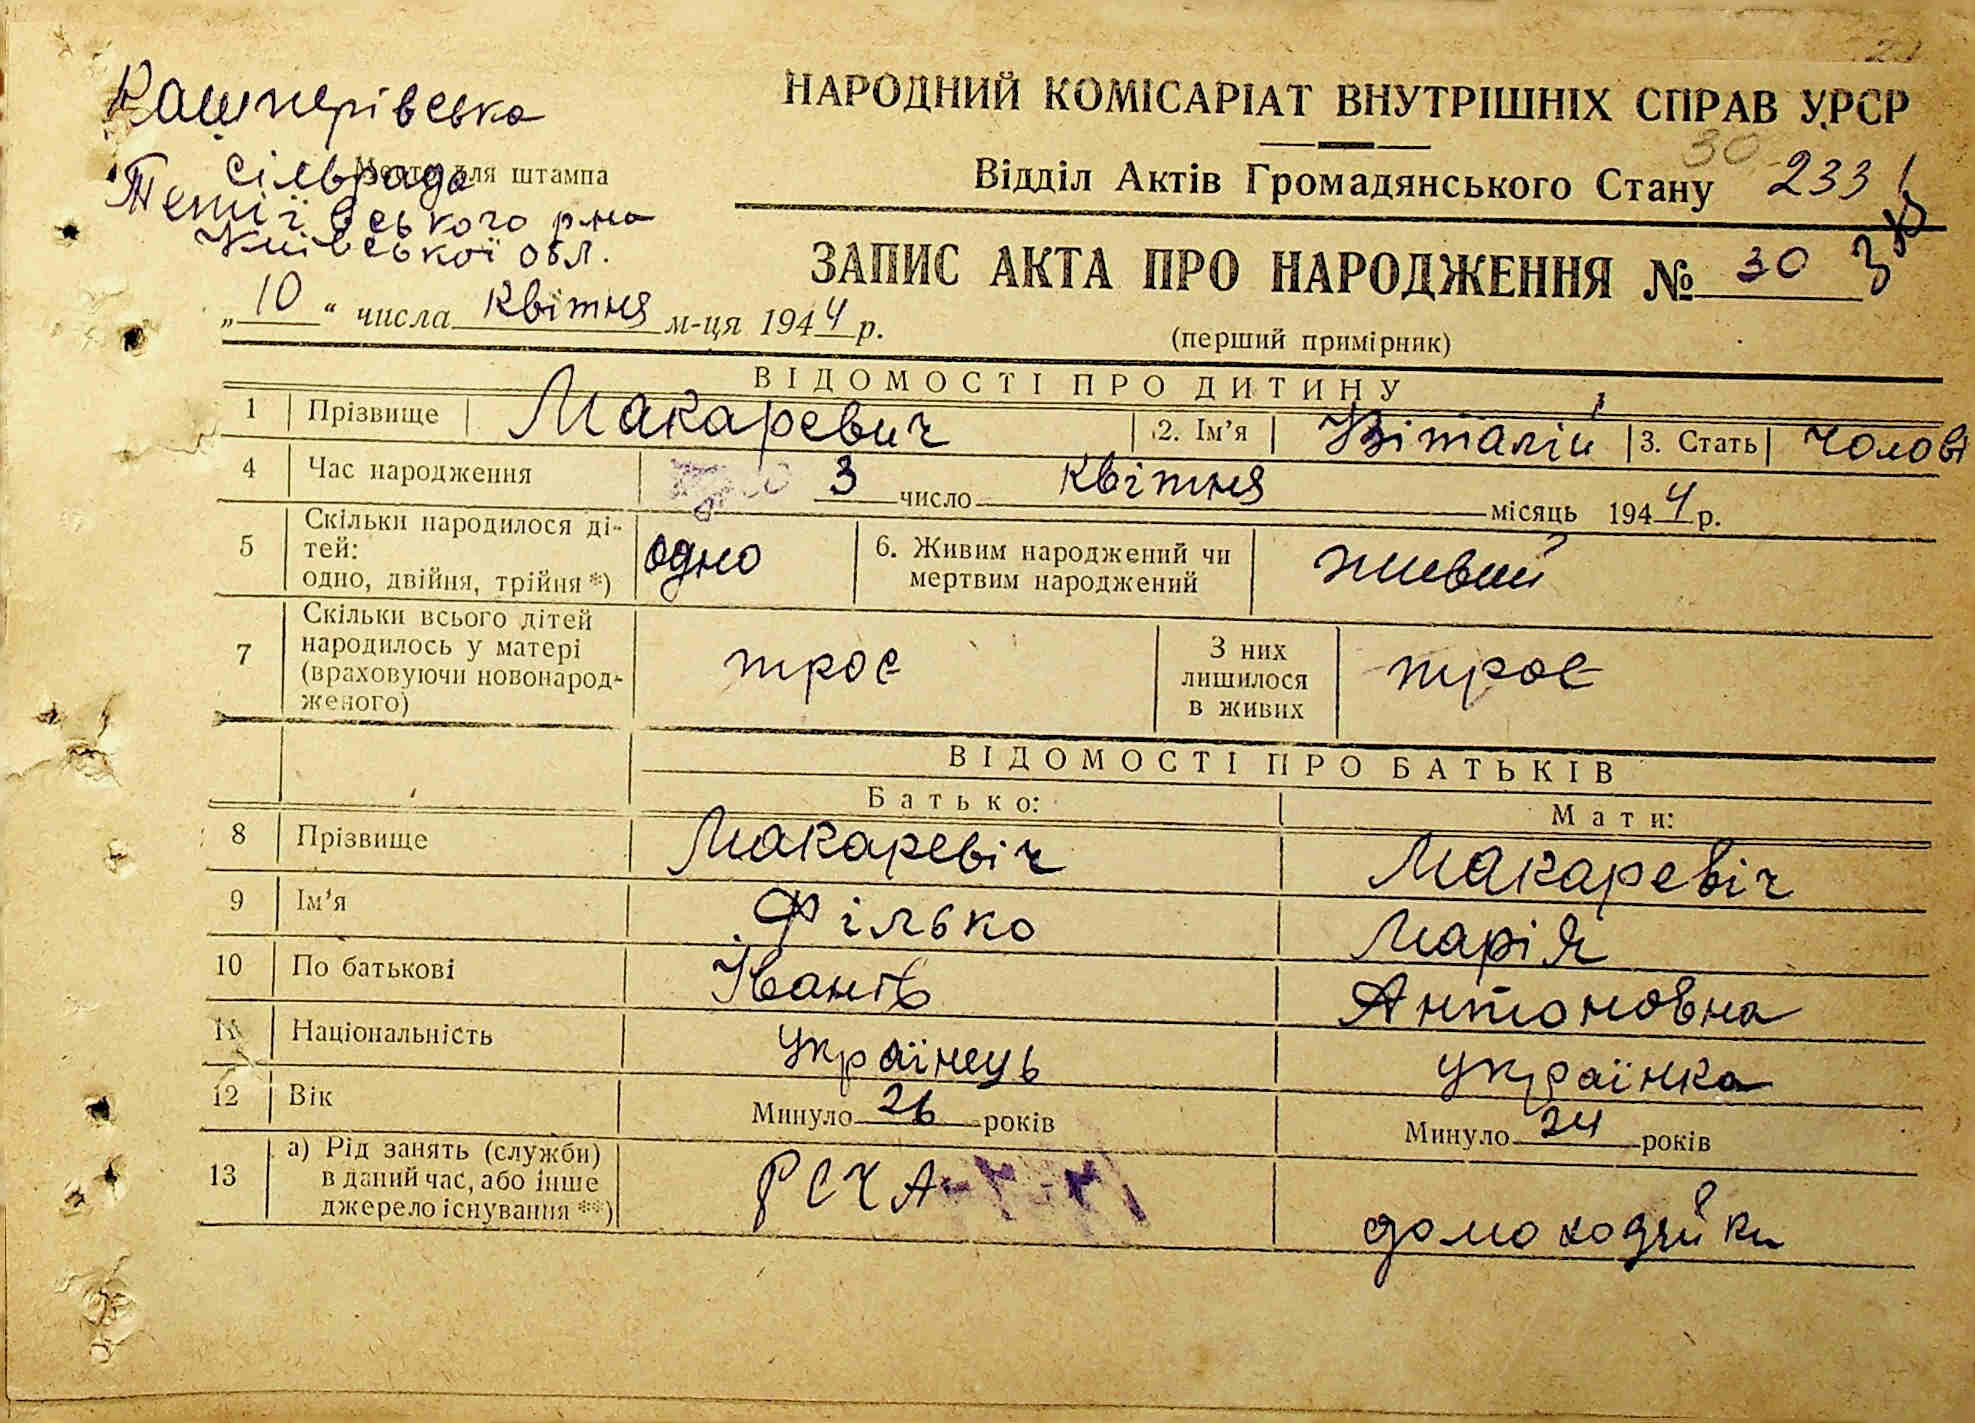 Кашперівська
сільрада
Місце для штампа
Тетіївського р-на
Київської обл.
НАРОДНИЙ КОМІСАРІАТ ВНУТРІШНІХ СПРАВ УРСР
30
Відділ Актів Громадянського Стану 233
ЗАПИС АКТА ПРО НАРОДЖЕННЯ № 30
„10“ числа квітня м-ця 1944 р.
(перший примірник)
ВІДОМОСТІ ПРО ДИТИНУ
1 Прізвище Макаревич 2. Ім'я Віталій 3. Стать чолові
4 Час народження 3 число квітня місяць 1944 р.
5 Скільки народилося ді-
тей:
одно, двійня, трійня *) одно
6. Живим народжений чи
мертвим народжений живий
7 Скільки всього дітей
народилось у матері
(враховуючи новонарод-
женого) троє
З них
лишилося
в живих троє
ВІДОМОСТІ ПРО БАТЬКІВ
Батько: Мати:
8 Прізвище Макаревіч Макаревіч
9 Ім'я Філько Марія
10 По батькові Іванів Антоновна
11 Національність українець українка
12 Вік Минуло 26 років Минуло 24 років
13 а) Рід занять (служби)
в даний час, або інше
джерело існування **) РСЧА домохозяйки